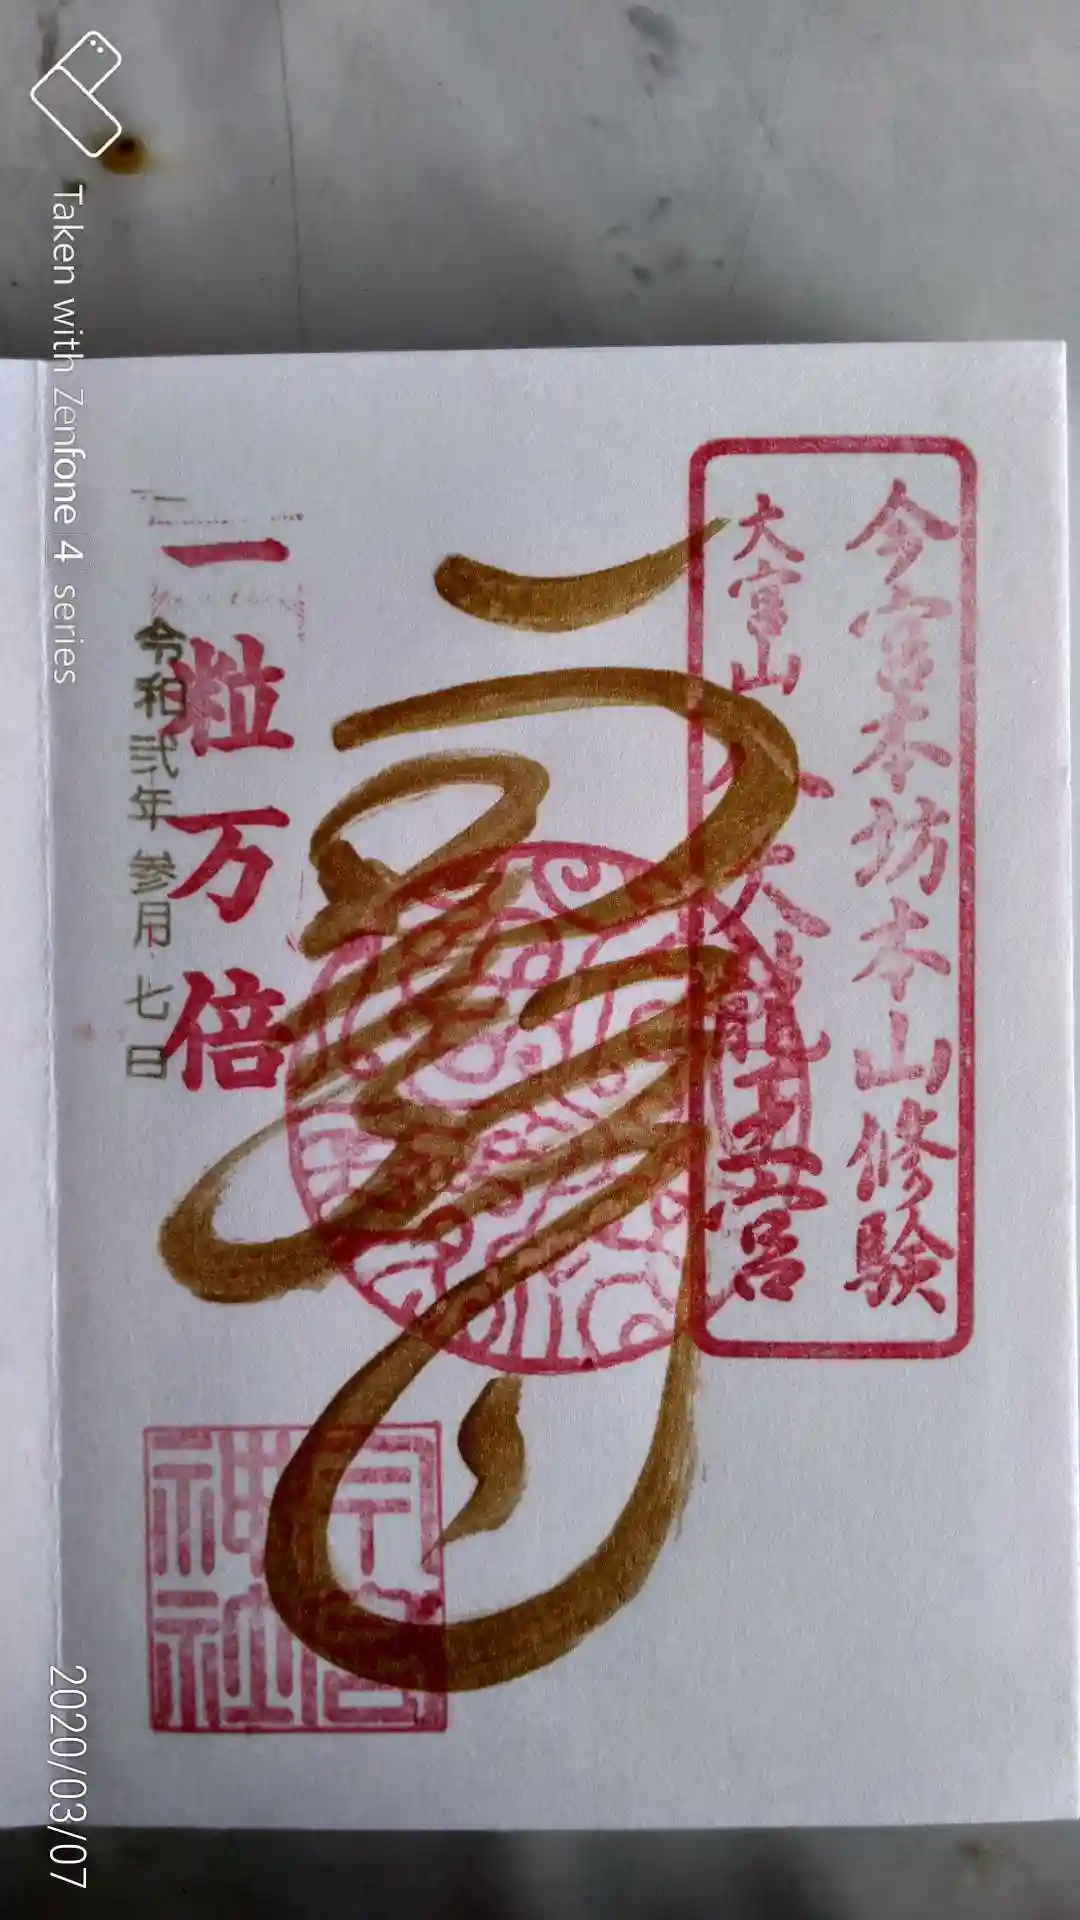 今宮本坊本山修験
大宮山 八大龍王宮
一粒万倍
令和弐年参月七日
今宮
神社
Taken with Zenfone 4 series
2020/03/07